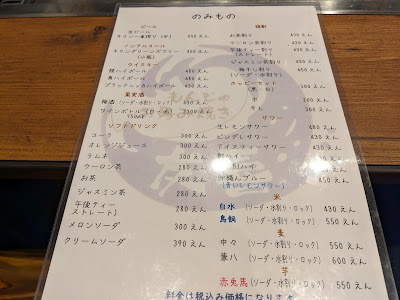 のみもの
ビール
生ビール
キリン一番搾り（中） 450えん
ノンアルコール
キリングリーンズフリー 450えん
（小瓶）
ウイスキー
角ハイボール 380えん
ブラックニッカハイボール 380えん
果実酒
梅酒（ソーダ・水割り・ロック）
ソフトドリンク
コーラ 300えん
オレンジジュース 300えん
ラムネ 300えん
ウーロン茶 280えん
お茶 280えん
ジャスミン茶 280えん
午後ティー 280えん
ストレート）
メロンソーダ 300えん
クリームソーダ 390えん
焼酎
お茶割り 430えん
ウーロン茶割り 430えん
ジャスミン茶割り 430えん
午後ティー割り 430えん
（ストレート）
梅干し割り
（ソーダ・水割り）
ホッピーセット
サワー
生レモンサワー
（青いレモンサワー）
米
白水（ソーダ・水割り・ロック） 430えん
鳥飼（ソーダ・水割り・ロック） 550えん
麦
中々（ソーダ・水割り・ロック） 550えん
兼八（ソーダ・水割り・ロック） 600えん
芋
赤兎馬（ソーダ・水割り・ロック） 550えん
料金は税込み価格になります